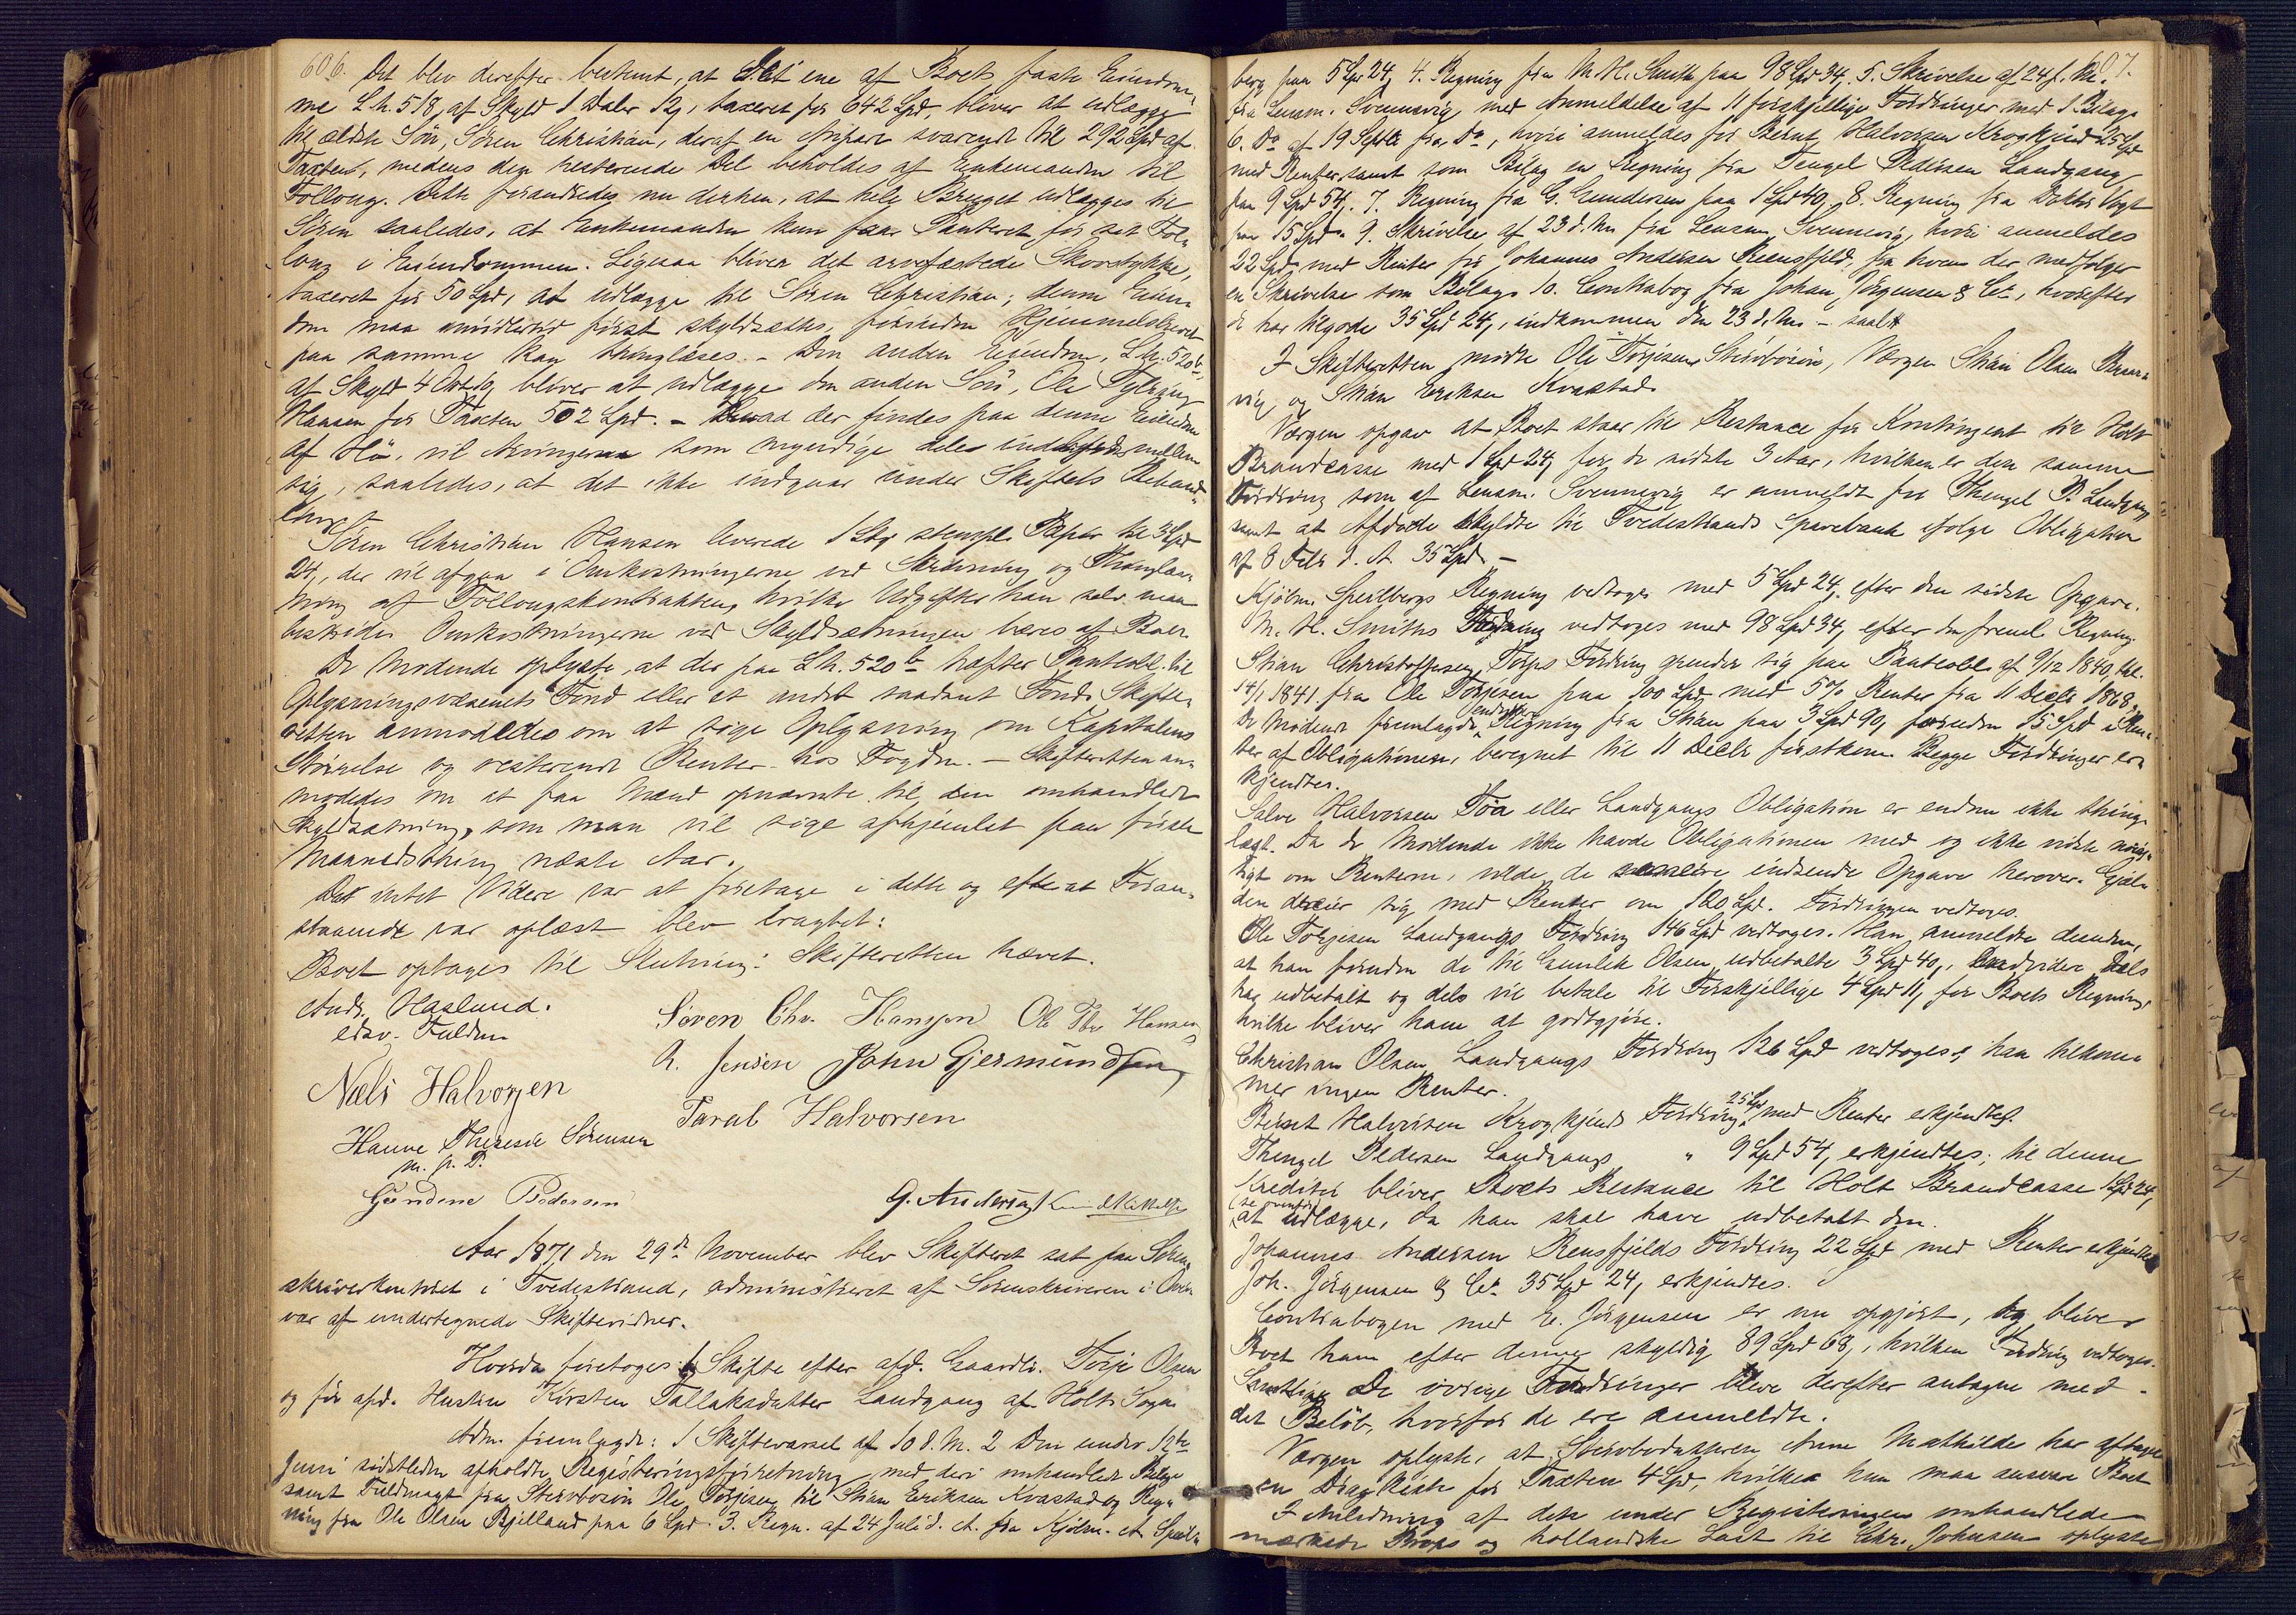 606.
Det blev derefter bestemt, at Det ene af Boets faste Eiendom-
me L.h. 518, af Skyld 1 Daler 12ß, taxeret for 642 Spd, bliver at udlægge
til ældste Søn, Søren Christian, deraf en Arvpart svarende til 292 Spd af
Taxten, medens den resterende Del beholdes af Enkemanden til
Follong. Dette forandredes nu derhen, at hele Bruget udlægges til
Søren saaledes, at Enkemanden kun faar Panteret for sit Fol-
long i Eiendommen. Ligesaa bliver det arvefæstede Skovstykke,
taxeret for 50 Spd, at udlægge til Søren Christian; denne Eien-
dom maa imidlertid først skyldsættes, forinden Hjemmelsbrevet
paa samme kan thinglæses. - Den anden Eiendom, L.h. 520b,
af Skyld 4 Ort, bliver at udlægge den anden Søn, Ole
Hansen for Taxten 502 Spd. - Hvad der findes paa denne Eiendom
af Hø, vil Arvingerne som myndige dele indbyrdes mellem
sig, saaledes, at det ikke indgaar under Skiftets Behand-
ling.
Søren Christian Hansen leverede 1 Stk stempl. Papir til 3 Spd
24ß, der vil afgaa i Omkostningerne ved Skrivning og Thinglæs-
ning af Follongskontrakten, hvilke Udgifter han selv maa
bestride. Omkostningerne ved Skyldsætningen bæres af Boet.
De Mødende oplyste, at der paa L.h. 520b hæfter Panteobl. til
Oplysningsvæsenets Fond eller et andet saadant Fond. Skifte-
retten anmodedes om at søge Oplysning om Kapitalens
Størrelse og resterende Renter hos Fogden. - Skifteretten an-
modedes om at faa Mænd opnævnte til den omhandlede
Skyldsætning, som man vil søge afhjemlet paa første
Maanedsthing næste Aar.
Da intet Videre var at foretage i dette og efterat Foran-
staaende var oplæst blev eragtet:
Boet optages til Slutning. Skifteretten hævet.
Ands. Haslund.
edsv. Fuldm.
Søren Chr. Hansen Ole Thv Hansen
A. Jensen John Gjermundsen
Neels Halvorsen
Taral Halvorsen
Hanne Theresie Sørensen
m. p. P.
Gundine Pedersen
G. Andersen
Aar 1871 den 29de November blev Skifteret sat paa Soren-
skriverkontoret i Tvedestrand, administreret af Sorenskriveren i Over-
vær af undertegnede Skiftevidner.
Hvorda foretoges Skifte efter afd. Gaardbr. Terje Olsen
og før afd. Hustru Kirsten Tallaksdatter Landgang af Holts Sogn
Adm. fremlagde: 1 Skiftevarsel af 10 d. M. 2 Den under 12te
Juni sidstleden afholdte Registreringsforretning med deri omhandlede Bilage
samt Fuldmagt fra Stervbosøn Ole Terjesen til Stian Eriksen Kvastad og Reg-
ning fra Ole Olsen Bjelland paa 6 Spd. 3. Regn. af 24 Juli d. A. fra Kjøbm. A. Speil-
607.
berg paa 5 Spd 24ß, 4. Regning fra M. H. Smith paa 98 Spd 34ß, 5. Skrivelse af 24 f. M.
fra Lensm. Svennevig, med Anmeldelse af 11 forskjellige Fordringer med 1 Bilag.
6. Do af 19 Septbr fra Do, hvori anmeldes for Bernt Halvorsen Krogkjend 25 Spd
med Renter samt som Bilag en Regning fra Tengel Pedersen Landgang
paa 9 Spd 54ß. 7. Regning fra G. Gundersen paa 1 Spd 40ß. 8. Regning fra Doktor Vogt
paa 15 Spd. 9. Skrivelse af 23 d. M. fra Lensm. Svennevig, hvori anmeldes
22 Spd med Renter for Johannes Andersen Rensfjeld, fra hvem der medfølger
en Skrivelse som Bilag. 10. Contrabog fra Johan Jørgensen & Co, hvorefter
de har tilgode 35 Spd 24ß, indkommen den 23 d. M. - saal.
I Skifteretten mødte Ole Terjesens Stervbosøn, Værgen Stian Olsen
vig og Stian Eriksen Kvastad.
Værgen opgav at Boet staar til Restance for Kontingent til Holt
Brandcasse med 1 Spd 24ß for de sidste 3 Aar, hvilken er den samme
Fordring som af Lensm. Svennevig er anmeldt for Thengel P. Landgang
samt at Afdøde skyldte til Tvedestrands Sparebank ifølge Obligation
af 8 Febr d. A. 35 Spd. -
Kjøbm. Speilbergs Regning vedtoges med 5 Spd 24ß efter den sidste Opgave.
M. H. Smiths Fordring vedtoges med 98 Spd 34ß, efter den freml. Regning.
Stian Christophersen Torps Fordring grunder sig paa Panteobl. af 9/12 1840, thl.
14/1 1841 fra Ole Terjesen paa 100 Spd med 5% Renter fra 11 Decbr 1868
De Mødende fremlagde endvidere Regning fra Stian paa 3 Spd 90ß foruden 15 Spd i Ren-
ter af Obligationen, beregnet til 11 Decbr førstkom. Begge Fordringer er-
kjendtes.
Salve Halvorsen Toa eller Landgangs Obligation er endnu ikke thing-
læst. Da de Mødende ikke havde Obligationen med og ikke vidste nøiag-
tigt om Renterne, vilde de senere indsende Opgave herover. Gjæl-
den dreier sig med Renter om 120 Spd. Fordringen vedtoges.
Ole Terjesen Landgangs Fordring 146 Spd vedtoges. Han anmeldte desuden,
at han foruden de til Gunlek Olsen udbetalte 3 Spd 40ß, endvidere dels
har udbetalt og dels vil betale til Forskjellige 4 Spd 11ß for Boets Regning,
hvilke bliver ham at godtgjøre.
Christian Olsen Landgangs Fordring 126 Spd vedtoges; han tilkom-
mer ingen Renter.
Bernt Halvorsen Krogkjends Fordring 25 Spd med Renter erkjendtes.
Thengel Pedersen Landgangs " 9 Spd 54ß, erkjendtes; til denne
Kreditor bliver Boets Restance til Holt Brandcasse 1 Spd 24ß
(se ovenfor) at udlægge, da han skal have udbetalt den.
Johannes Andersen Rensfjelds Fordring 22 Spd med Renter erkjendtes
Joh. Jørgensen & Co. 35 Spd 24ß, erkjendtes.
Contrabogen med E. Jørgensen er nu opgjort, og bliver
Boet ham efter denne skyldig 89 Spd 68ß, hvilken Fordring vedtoges.
Samtlige De øvrige Fordringer bleve derefter antagne med
det Beløb, hvorfor de ere anmeldte.
Værgen oplyste, at Stervbodatteren Anne Mathilde har aftaget
en Dragkiste for Taxten 4 Spd, hvilken hun maa ansvare Boet
I Anledning af den under Registreringen omhandlede
mærkede Props og hollandske Last til Chr. Johnsen oplyste